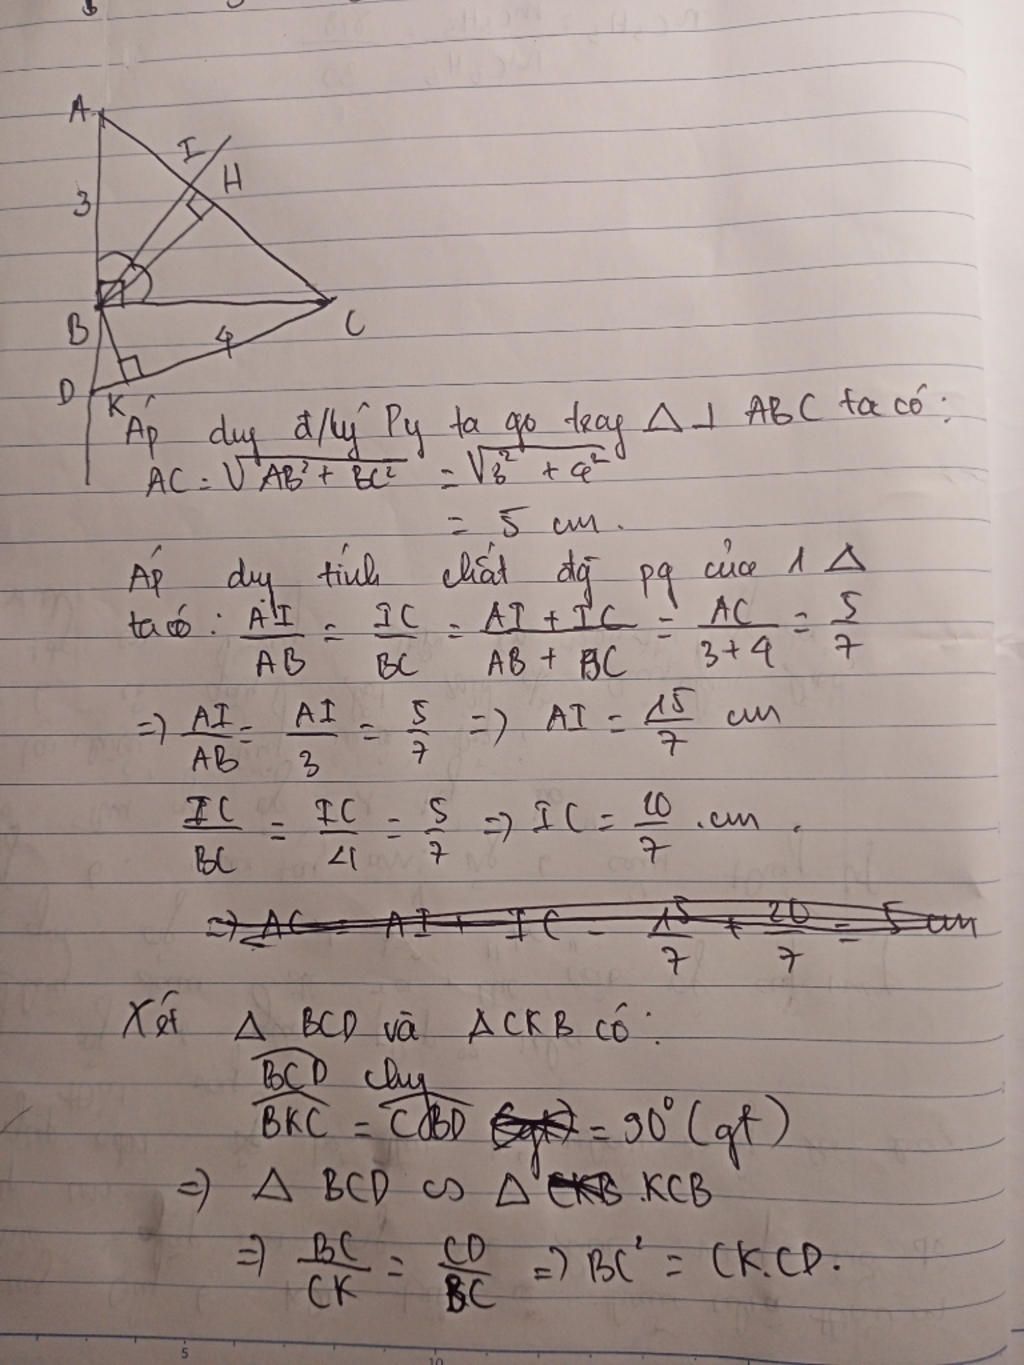 A
I
H
3
B
C
4
D
K
Áp dụng đ/lý Py ta go trong Δ ⊥ ABC ta có:
AC = √AB² + BC² = √3² + 4²
= 5 cm.
Áp dụng tính chất đg pg của 1 Δ
ta có: AI/AB = IC/BC = AI + IC/AB + BC = AC/3+4 = 5/7
=> AI/AB = AI/3 = 5/7 => AI = 15/7 cm
IC/BC = IC/4 = 5/7 => IC = 20/7 .cm.
=> AC = AI + IC = 15/7 + 20/7 = 5 cm
Xét Δ BCD và ΔCKB có:
BCD chung
BKC = CBD = 90° (gt)
=> Δ BCD ∽ Δ KCB
=> BC/CK = CD/BC => BC² = CK.CD.
5
10